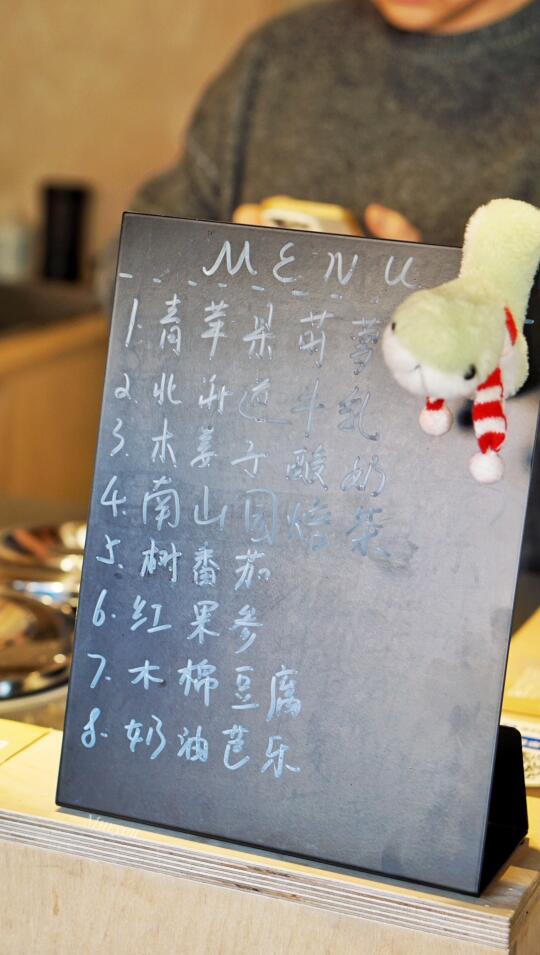 MENU
1. 青苹果萄萝
2. 北海道牛乳
3. 木姜子酸奶
4. 南山国焙茶
5. 树番茄
6. 红果参
7. 木棉豆腐
8. 奶油芭乐